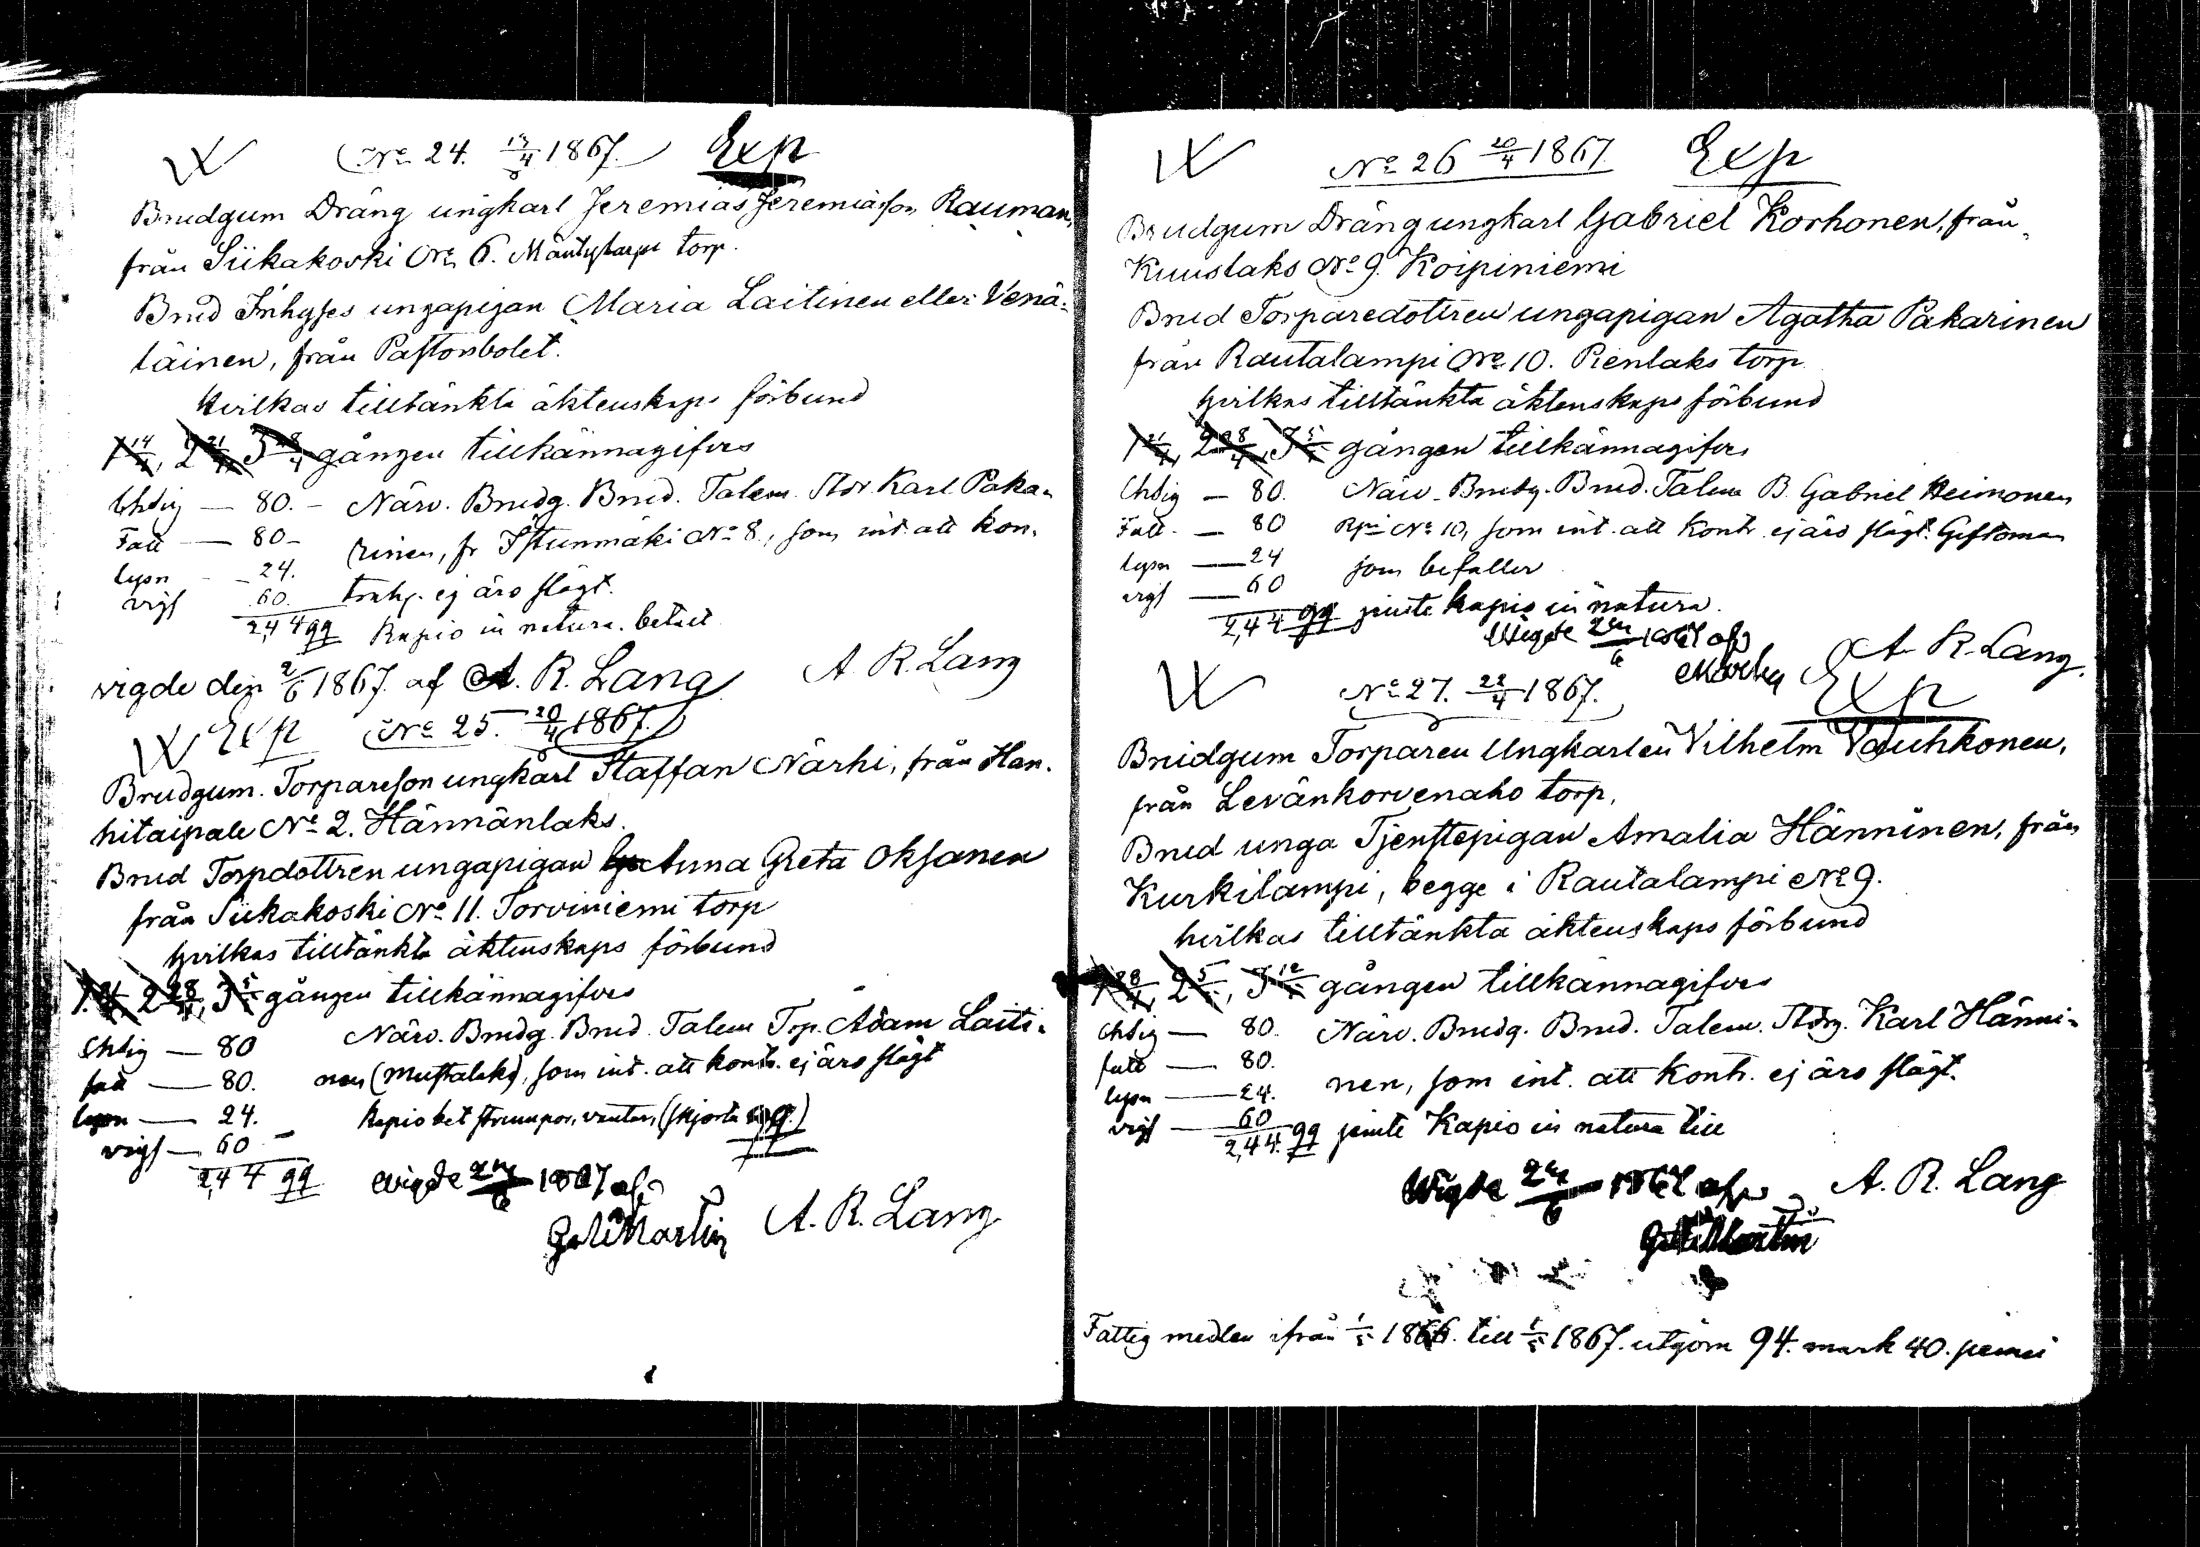 W No 24. 13/4 1867. Exp
Brudgum Dräng ungkarl Jeremias Jeremiasson Rauman,
från Siikakoski No 6. Mäntyharju torp.
Brud Inhyses ungapigan Maria Laitinen eller Venä-
läinen, från Pastorsbolet.
hvilkas tilltänkta äktenskaps förbund
1 14/4, 2 21/4 3 28/4 gången tillkännagifves
Ehstig — 80. – Närv. Brudg. Brud. Talem. Stdr Karl Paka-
Fatt — 80 – rinen, fr Istunmäki No 8., som int. att kon-
lysn – 24. trah. ej äro slägt.
vigs 60.
2,44 qq Kapio in natura betalt
vigde den 2/6 1867. af A. R. Lang A. R. Lang
W Exp No 25. 20/4 1867.
Brudgum. Torpareson ungkarl Staffan Närhi, från Han-
hitaipale No 2. Hännänlaks.
Brud Torpdottren ungapigan Anna Greta Oksanen
från Siikakoski No 11. Torviniemi torp
hvilkas tilltänkta äktenskaps förbund
1. 21/4 2 28/4, 3 5/5 gången tillkännagifves
Ehstig — 80 Närv. Brudg. Brud. Talem Trp. Adam Laiti-
fatt — 80. nen (Mustalaks), som int. att kontr. ej äro slägt
lysn — 24. Kapio bet strumpor, vantar, (skjorta qq.)
vigs — 60 –
2,44 qq Vigde 24/6 1867 af
G. Martin A. R. Lang
W No 26 20/4 1867 Exp
Brudgum Dräng ungkarl Gabriel Korhonen, från
Kuuslaks No 9. Koipiniemi
Brud Torparedottren ungapigan Agatha Pakarinen
från Rautalampi No 10. Pienlaks torp
hvilkas tilltänkta äktenskaps förbund
1 21/4, 2 28/4, 3 5/5 gången tillkännagifves
Ehstig — 80. Närv. Brudg. Brud. Talem B. Gabriel Heimonen
Fatt. — 80 Rpi No 10, som int. att kontr. ej äro slägt. Giftoman
lysn — 24 som befaller
vigs — 60
2,44 qq jemte kapio in natura.
Vigde 24/6 1867 af
Martin A. R. Lang.
W No 27. 22/4 1867. Exp
Brudgum Torparen Ungkarlen Vilhelm Vauhkonen,
från Levänkorvenaho torp,
Brud unga Tjenstepigan Amalia Hänninen, från
Kurkilampi, begge i Rautalampi No 9.
hvilkas tilltänkta äktenskaps förbund
1 28/4, 2 5/5, 3 12/5 gången tillkännagifves
Ehstig — 80. Närv. Brudg. Brud. Talem. Karl Hänni-
fatt — 80. nen, som int. att kontr. ej äro slägt.
lysn — 24.
vigs — 60
2,44. qq jemte Kapio in natura till
Vigde 24/6 1867 af A. R. Lang
G. Martin
Fattig medlen ifrån 1/5 1866. till 1/5 1867. utgöra 94. mark 40. penni